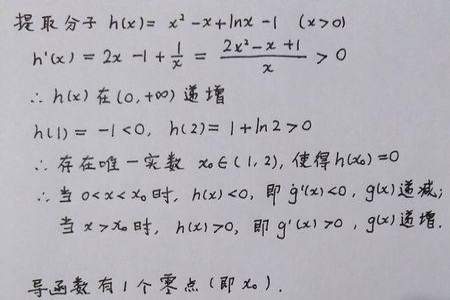 提取分子 h(x) = x² - x + lnx - 1 (x>0)
h'(x) = 2x - 1 + 1/x = (2x² - x + 1)/x > 0
∴ h(x) 在 (0, +∞) 递增
h(1) = -1 < 0, h(2) = 1 + ln2 > 0
∴ 存在唯一实数 x₀∈(1, 2), 使得 h(x₀) = 0
∴ 当 0 < x < x₀ 时, h(x) < 0, 即 g'(x) < 0, g(x) 递减;
当 x > x₀ 时, h(x) > 0, 即 g'(x) > 0, g(x) 递增.
导函数有 1 个零点 (即 x₀).